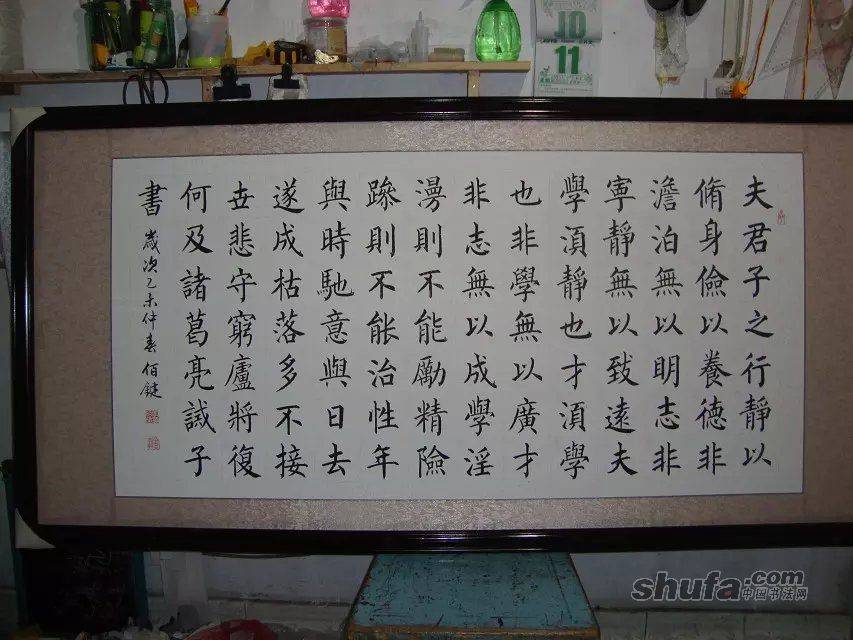 夫君子之行靜以
脩身儉以養德非
澹泊無以明志非
寧靜無以致遠夫
學湏靜也才湏學
也非學無以廣才
非志無以成學淫
漫則不能勵精險
躁則不能治性年
與時馳意與日去
遂成枯落多不接
世悲守窮廬將復
何及諸葛亮誡子
書 歲次乙未仲春 佰鍵
10
11
shufa.com
中国书法网